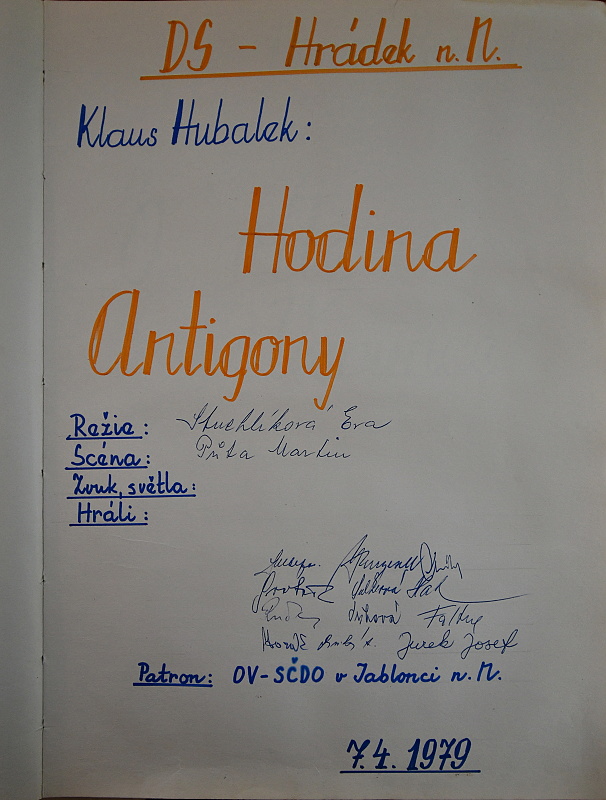 DS - Hrádek n. N.
Klaus Hubalek:
Hodina
Antigony
Režie: Stuchlíková Eva
Scéna: Průta Martin
Zvuk, světla:
Hráli:
Jurek Josef
Patron: OV-SČDO v Jablonci n. N.
7. 4. 1979